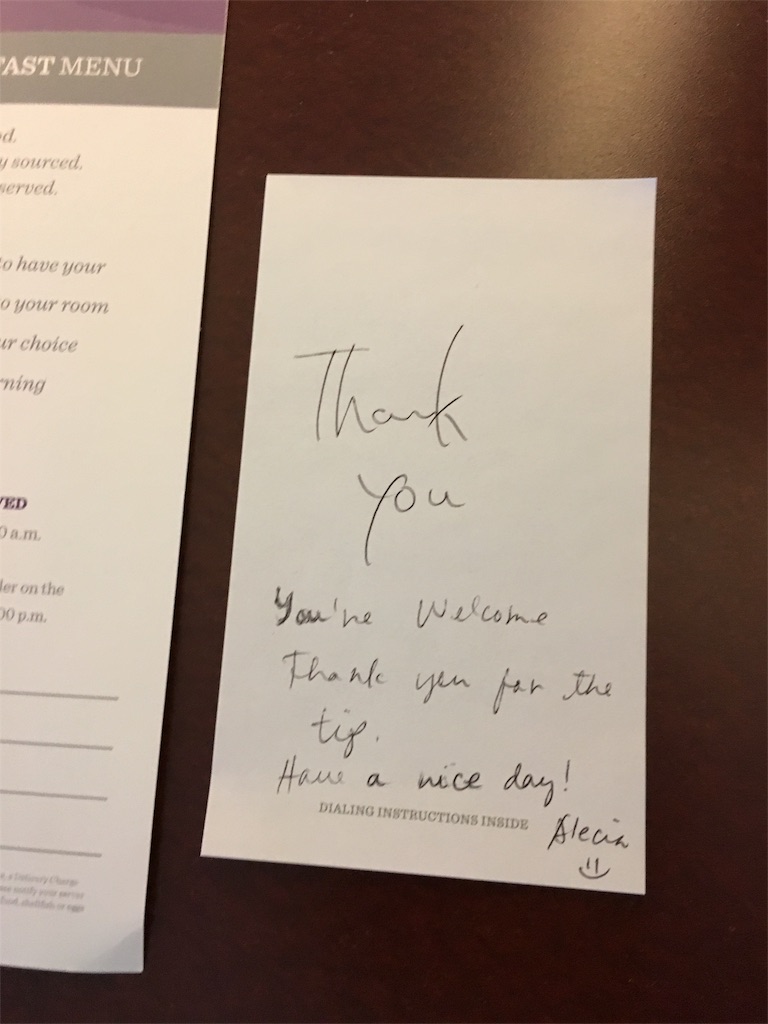 FAST MENU
od.
y sourced.
served.
to have your
to your room
ur choice
rning
VED
0 a.m.
der on the
00 p.m.
Thank
You
You're Welcome
Thank you for the
tip.
Have a nice day!
DIALING INSTRUCTIONS INSIDE
Alecia
a Delivery Charge